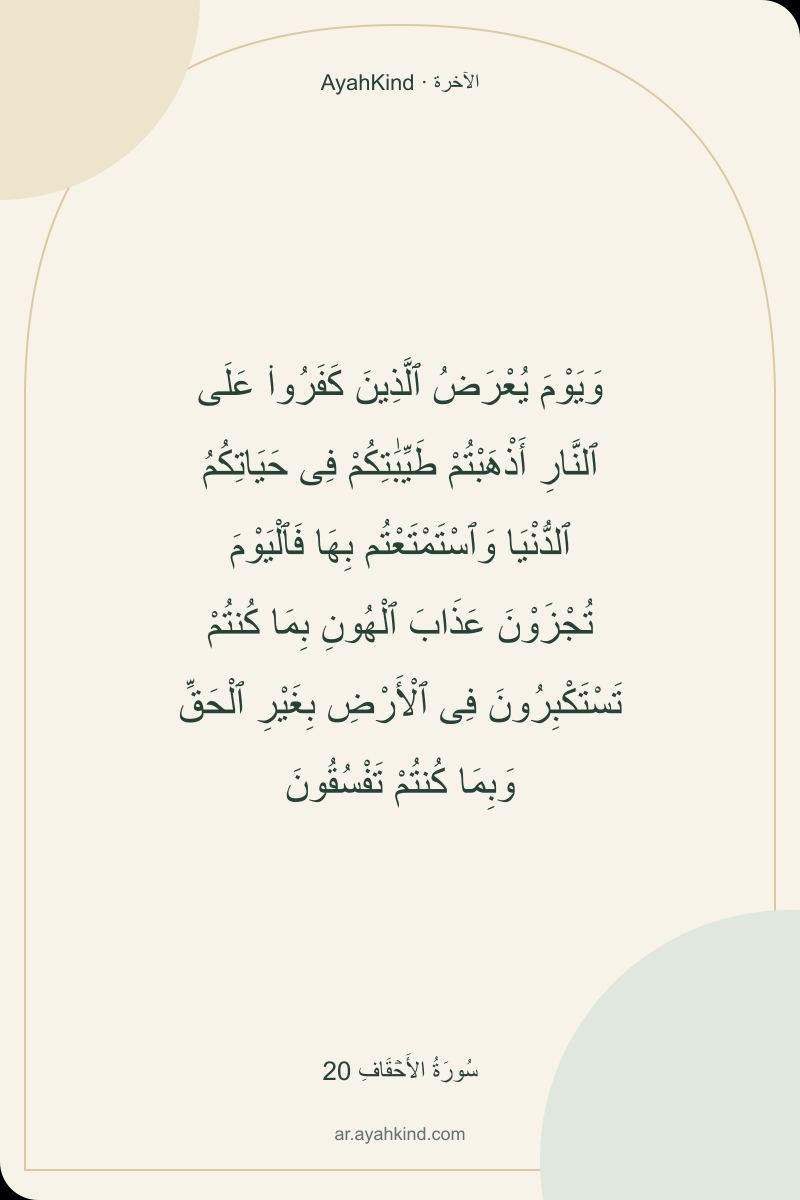 AyahKind · الآخرة
وَيَوْمَ يُعْرَضُ ٱلَّذِينَ كَفَرُوا۟ عَلَى
ٱلنَّارِ أَذْهَبْتُمْ طَيِّبَـٰتِكُمْ فِى حَيَاتِكُمُ
ٱلدُّنْيَا وَٱسْتَمْتَعْتُم بِهَا فَٱلْيَوْمَ
تُجْزَوْنَ عَذَابَ ٱلْهُونِ بِمَا كُنتُمْ
تَسْتَكْبِرُونَ فِى ٱلْأَرْضِ بِغَيْرِ ٱلْحَقِّ
وَبِمَا كُنتُمْ تَفْسُقُونَ
سُورَةُ الأَحۡقَافِ 20
ar.ayahkind.com